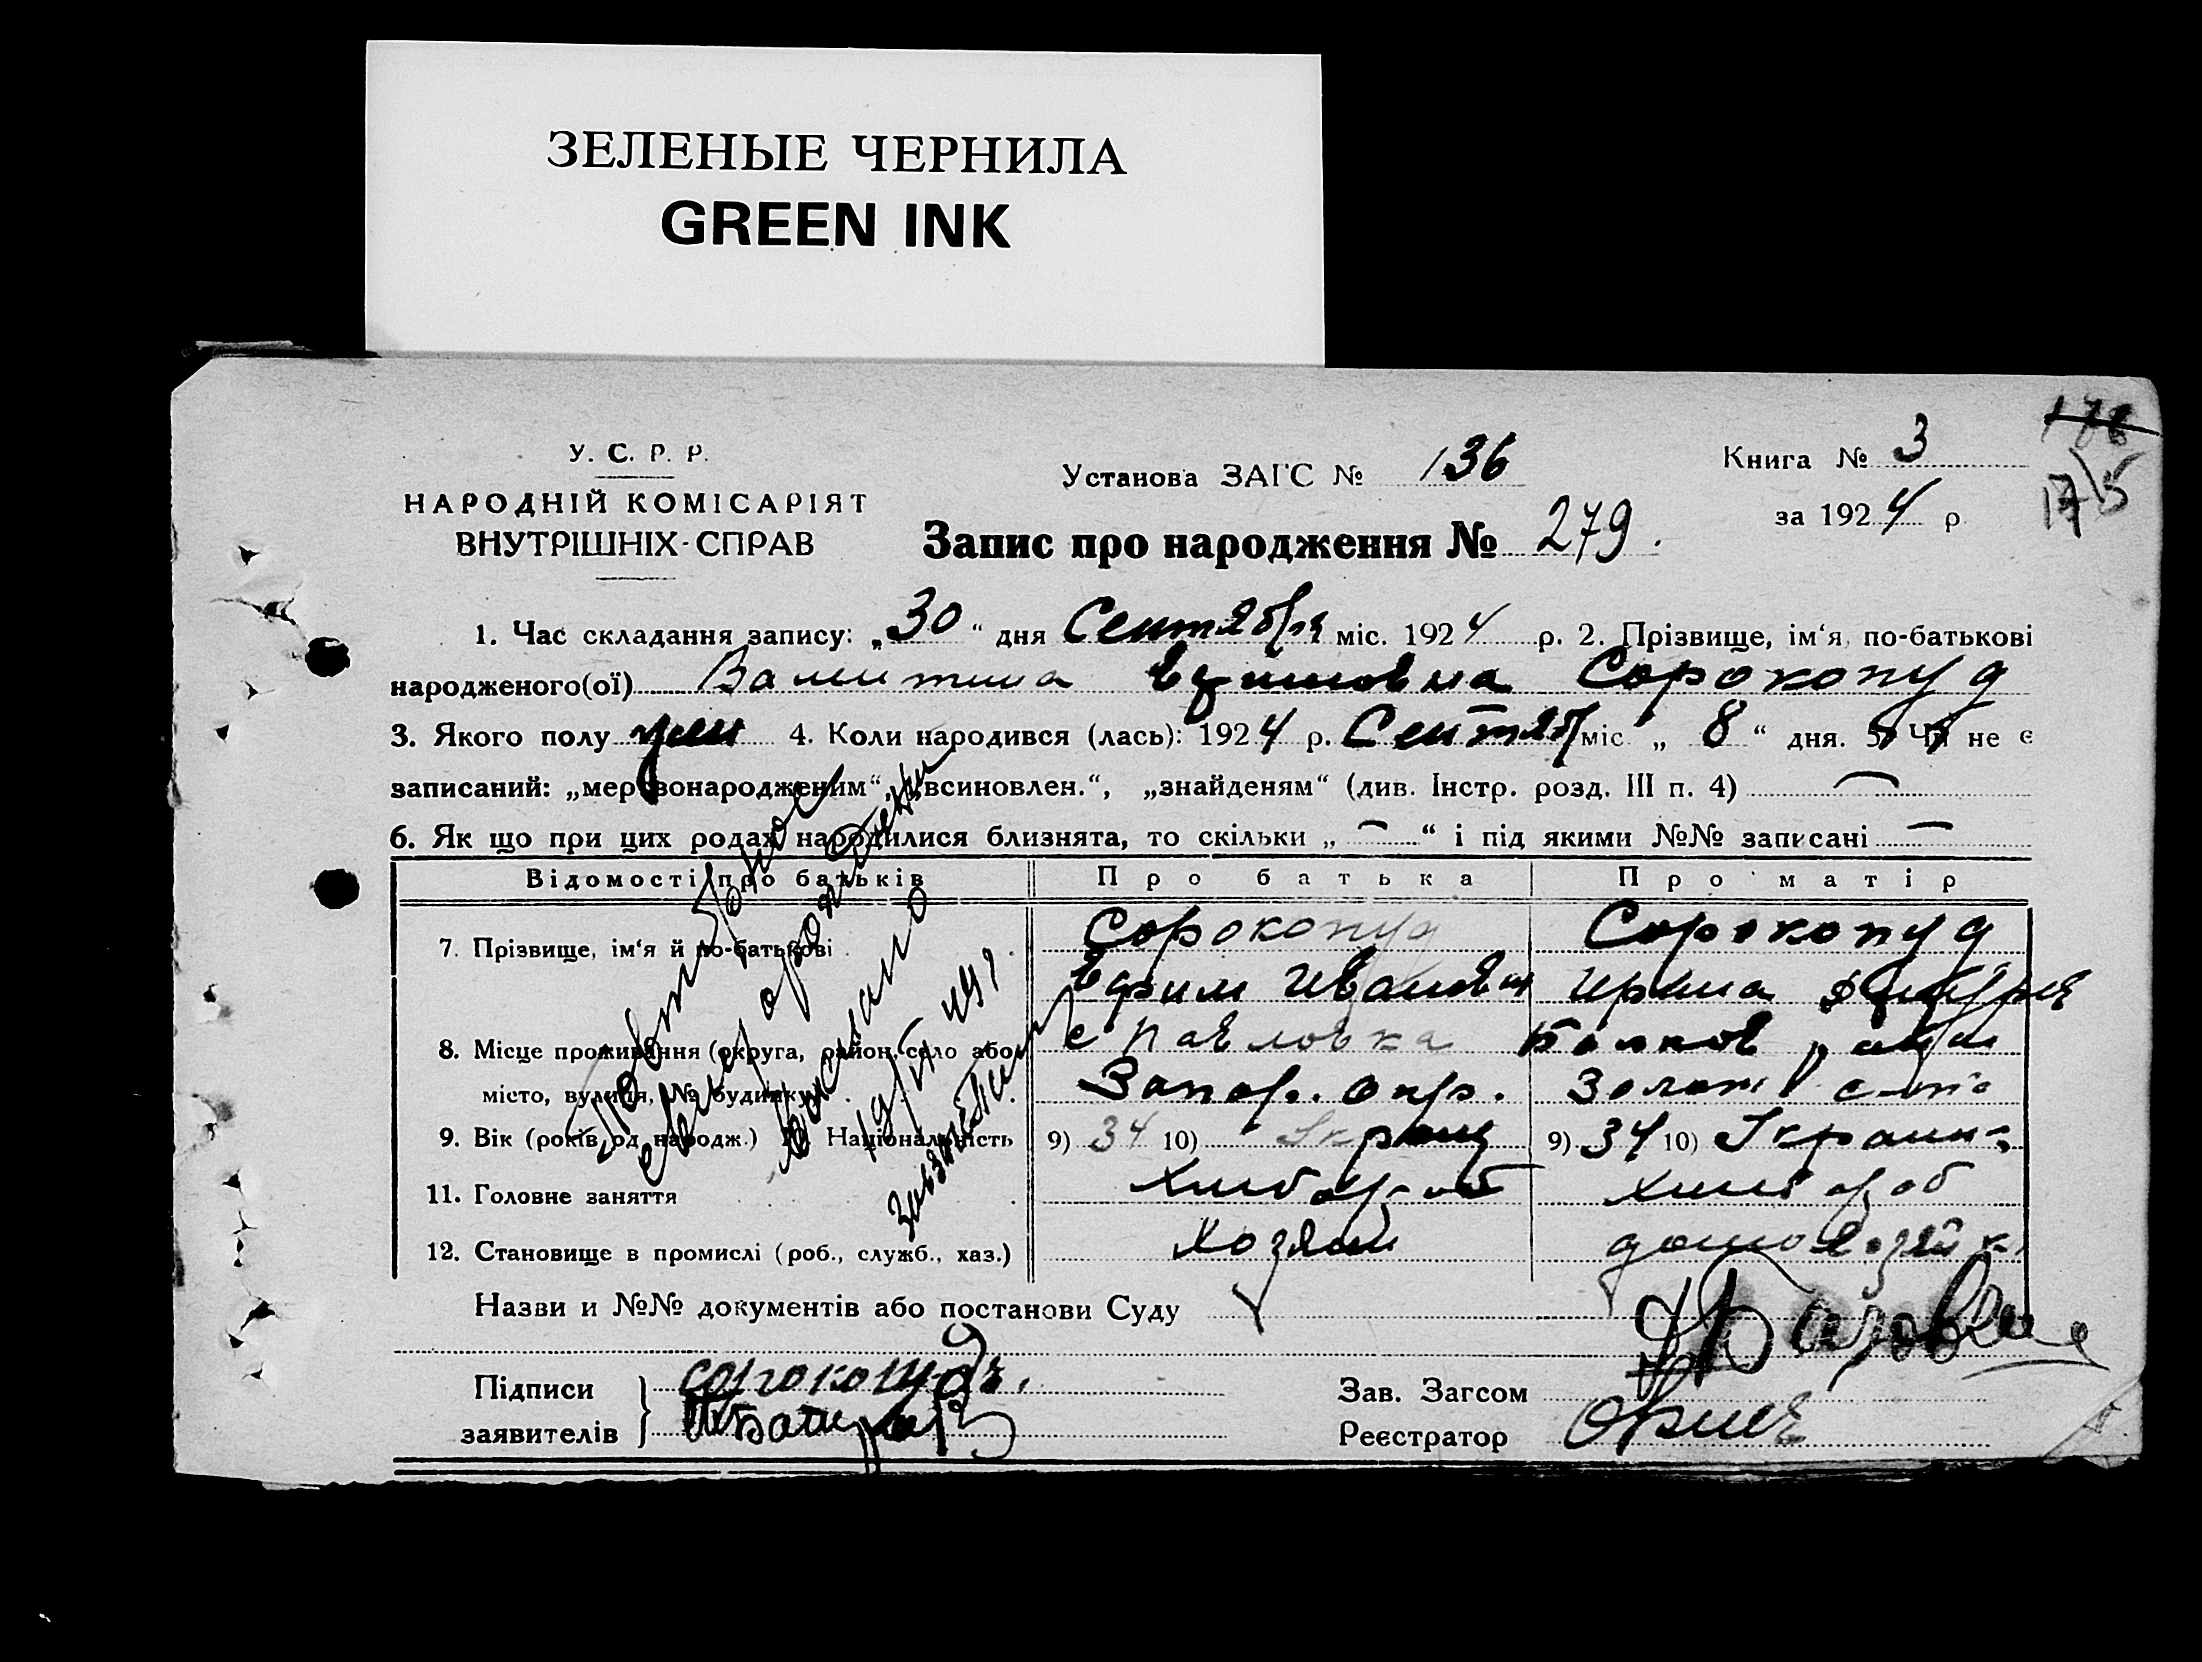 ЗЕЛЕНЫЕ ЧЕРНИЛА
GREEN INK
178
175
У. С. Р. Р.
НАРОДНІЙ КОМІСАРІЯТ
ВНУТРІШНІХ-СПРАВ
Установа ЗАГС № 136
Книга № 3
за 1924 р
Запис про народження № 279.
1. Час складання запису: „30“ дня Сентября міс. 1924 р. 2. Прізвище, ім‘я, по-батькові
народженого(ої) Валентина Ефимовна Сорокопуд
3. Якого полу жен 4. Коли народився (лась): 1924 р. Сентяб міс „8“ дня. 5. Чи не є
записаний: „мертвонародженим“ „всиновлен.“, „знайденям“ (див. Інстр. розд. III п. 4) —
6. Як що при цих родах народилися близнята, то скільки „—“ і під якими №№ записані —
Відомості про батьків Про батька Про матір
7. Прізвище, ім‘я й по-батькові Сорокопуд Сорокопуд
Ефим Иванович Ирина
8. Місце проживання (округа, район, село або с Павловка
місто, вулиця, № будинку) Запор. окр.
9. Вік (років од народж.) 10) Національність 9) 34 10) Украин 9) 34 10) Украин
11. Головне заняття Хлибороб хлибороб
12. Становище в промислі (роб., служб., хаз.) Хозяин домохозяйк
Повторное
свид о рождении
выслано
Назви и №№ документів або постанови Суду
Підписи сорокопудъ.
заявителів
Зав. Загсом
Реєстратор